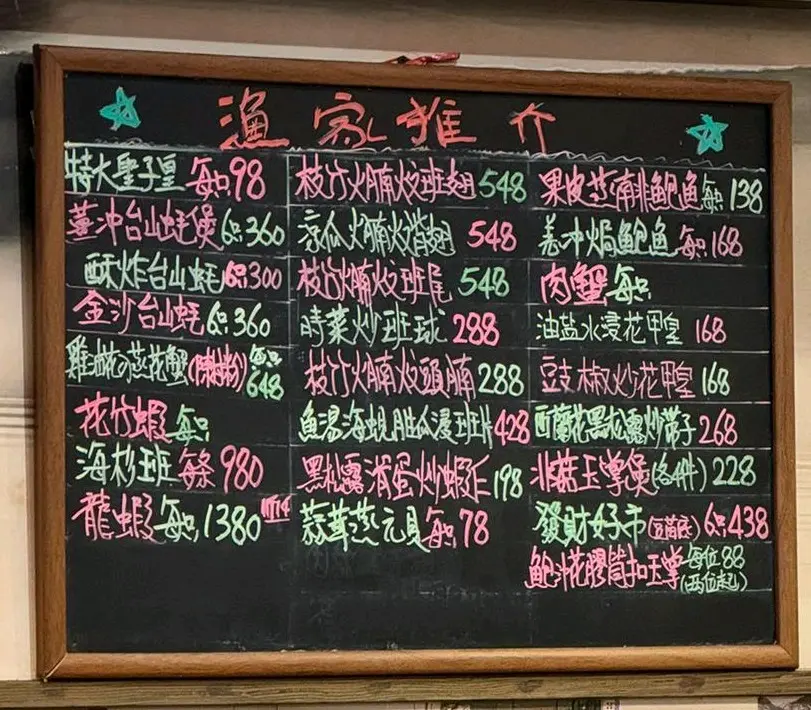 漁家推介
特大聖子皇 每只98
薑冲台山蚝煲 6只360
酥炸台山蚝 6只300
金沙台山蚝 6只360
雞油花冰蒸花蟹(陳村粉) 每只648
花竹蝦 每只
海杉班 每条980
龍蝦 每只1380
枝竹火腩炆班翅 548
凉瓜火腩炆班翅 548
枝竹火腩炆班尾 548
時菜炒班球 288
枝竹火腩炆頭腩 288
魚湯海蜆胜瓜浸班片 428
黑松露滑蛋炒蝦仁 198
蒜茸蒸元貝 每只78
果皮蒸南非鮑魚 每只138
姜冲焗鮑魚 每只168
肉蟹 每只
油盐水浸花甲皇 168
豉椒炒花甲皇 168
西蘭花黑松露炒带子 268
北菇玉掌煲(各4件) 228
發財好市(豆苗底) 6只438
鮑汁花膠筒扣玉掌 每位88
(两位起)